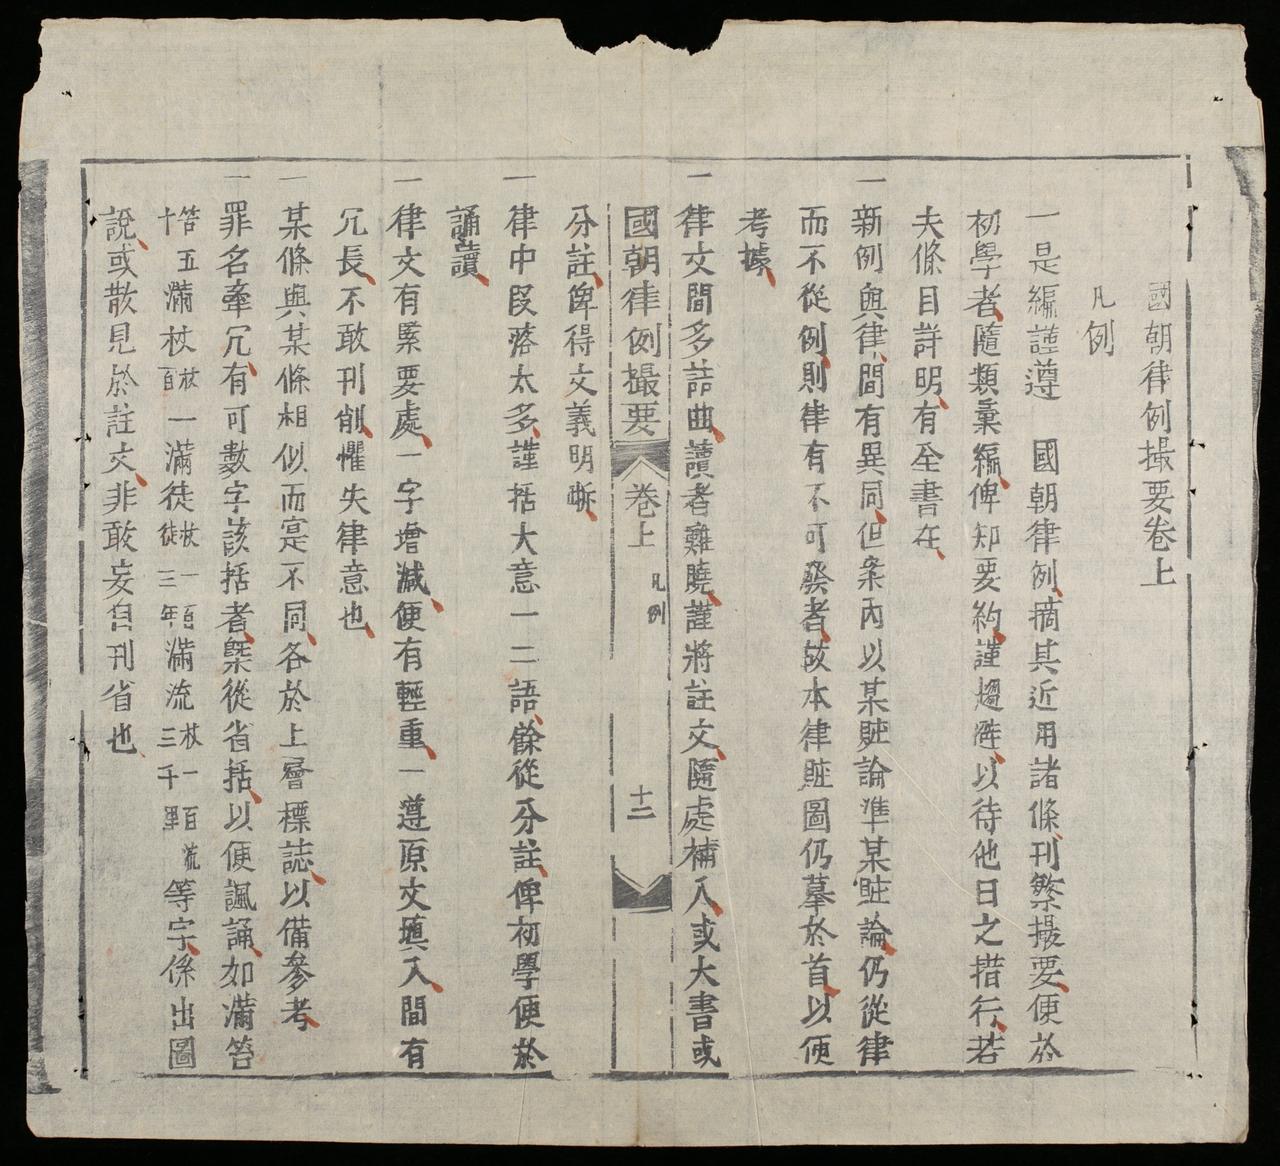 國朝律例撮要卷上
凡例
一是編謹遵 國朝律例摘其近用諸條刊繁撮要便於
初學者隨類彙編俾知要約謹趨避以待他日之措行若
夫條目詳明有全書在
一新例與律間有異同但案內以某贓論準某贓論仍從律
而不從例則律有不可癈者故本律贓圖仍摹於首以便
考據
一律文間多詰曲讀者難曉謹將註文隨處補入或大書或
國朝律例撮要 卷上 凡例 十二
分註俾得文義明晰
一律中段落太多謹括大意一二語餘從分註俾初學便於
誦讀
一律文有緊要處一字增減便有輕重一遵原文塡入間有
冗長不敢刊削懼失律意也
一某條與某條相似而寔不同各於上層標誌以備參考
一罪名牽冗有可數字該括者槩從省括以便諷誦如滿笞
笞五十滿杖杖一百滿徒杖一百徒三年滿流杖一百流三千里等字係出圖
說或散見於註文非敢妄自刊省也